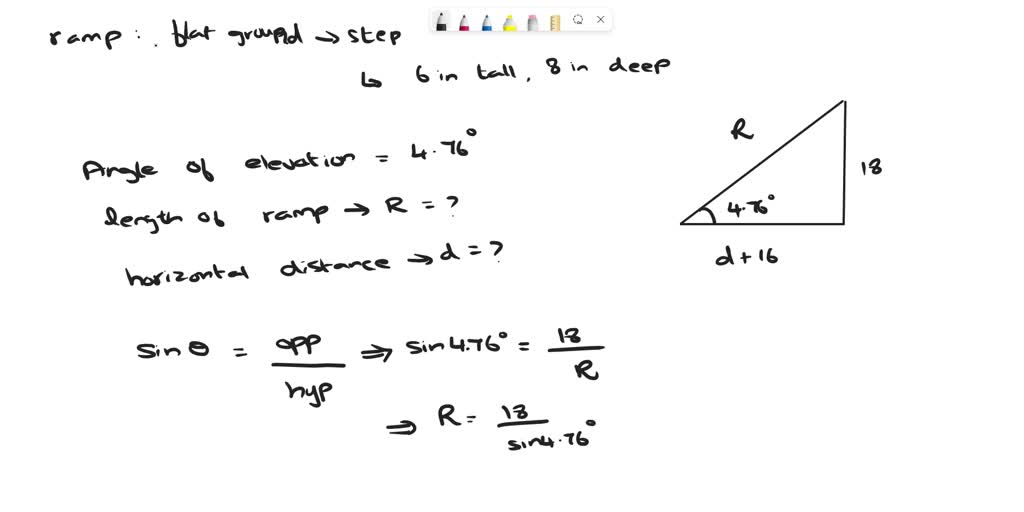 ramp : flat ground → step
↳ 6 in tall, 8 in deep
Angle of elevation = 4.76°
length of ramp → R = ?
horizontal distance → d = ?
R
18
4.76°
d + 16
sin θ = opp/hyp ⇒ sin 4.76° = 18/R
⇒ R = 18/sin 4.76°